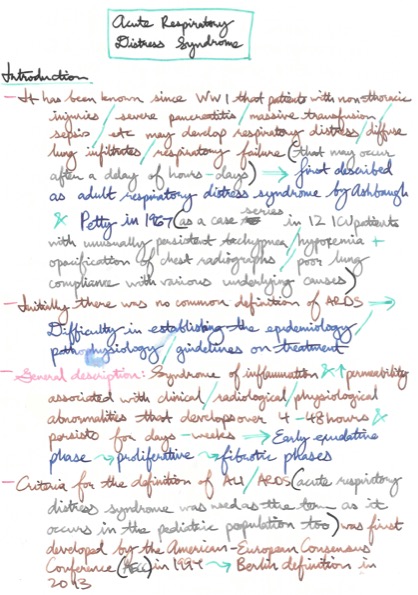 Acute Respiratory
Distress Syndrome
Introduction
- It has been known since WW1 that patients with non-thoracic
injuries / severe pancreatitis / massive transfusion /
sepsis / etc may develop respiratory distress / diffuse
lung infiltrates / respiratory failure (that may occur
after a delay of hours-days) ⇒ first described
as adult respiratory distress syndrome by Ashbaugh
& Petty in 1967 (as a case series in 12 ICU patients
with unusually persistent tachypnea / hypoxemia +
opacification of chest radiographs / poor lung
compliance with various underlying causes)
- Initially there was no common definition of ARDS ⇒
Difficulty in establishing the epidemiology /
pathophysiology / guidelines on treatment
- General description: Syndrome of inflammation & ↑ permeability
associated with clinical / radiological / physiological
abnormalities that develops over 4-48 hours &
persists for days - weeks ⇒ Early exudative
phase → proliferative → fibrotic phases
- Criteria for the definition of ALI / ARDS (acute respiratory
distress syndrome was used as the term as it
occurs in the pediatric population too) was first
developed by the American-European Consensus
Conference (AECC) in 1994 → Berlin definition in
2013